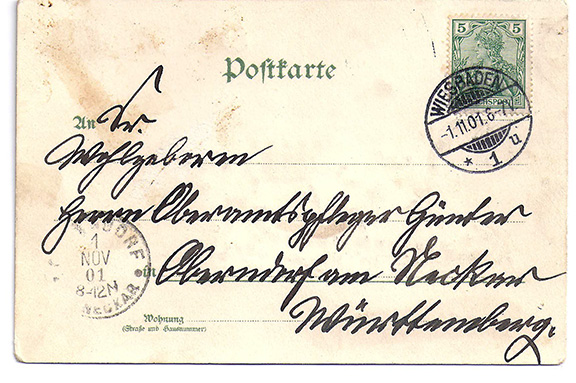 5 5
Postkarte
WIESBADEN
1.11.01.6-7N
* 1 u
An Sr.
Wohlgeboren
Herrn Oberamtspfleger Günter
in Oberndorf am Neckar
Württemberg.
NDORF
1
NOV
01
8-12N
NECKAR
Wohnung
(Straße und Hausnummer)